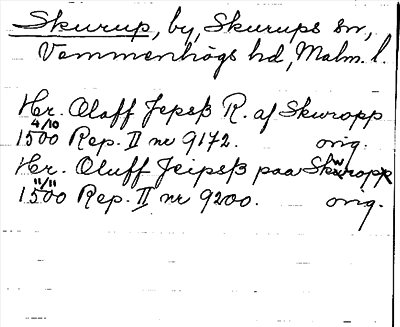 Skurup, by, Skurups sn,
Vemmenhögs hd, Malm. l.
Hr. Olaff Jepsß R. af Skuropp
4/10
1500 Rep. II nr 9172. orig.
Hr. Oluff Jeipsß paa Skwropp
11/11
1500 Rep. II nr 9200. orig.